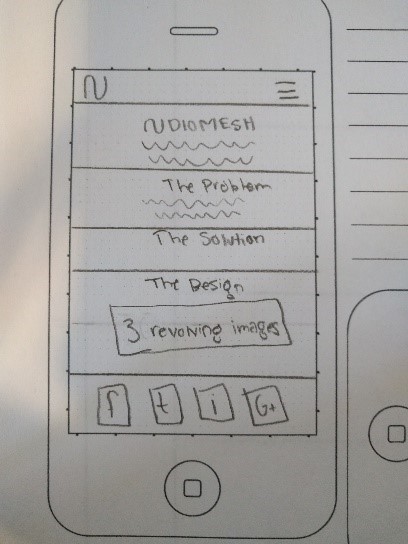 N
NDIOMESH
The Problem
The Solution
The Design
3 revolving images
f t i G+